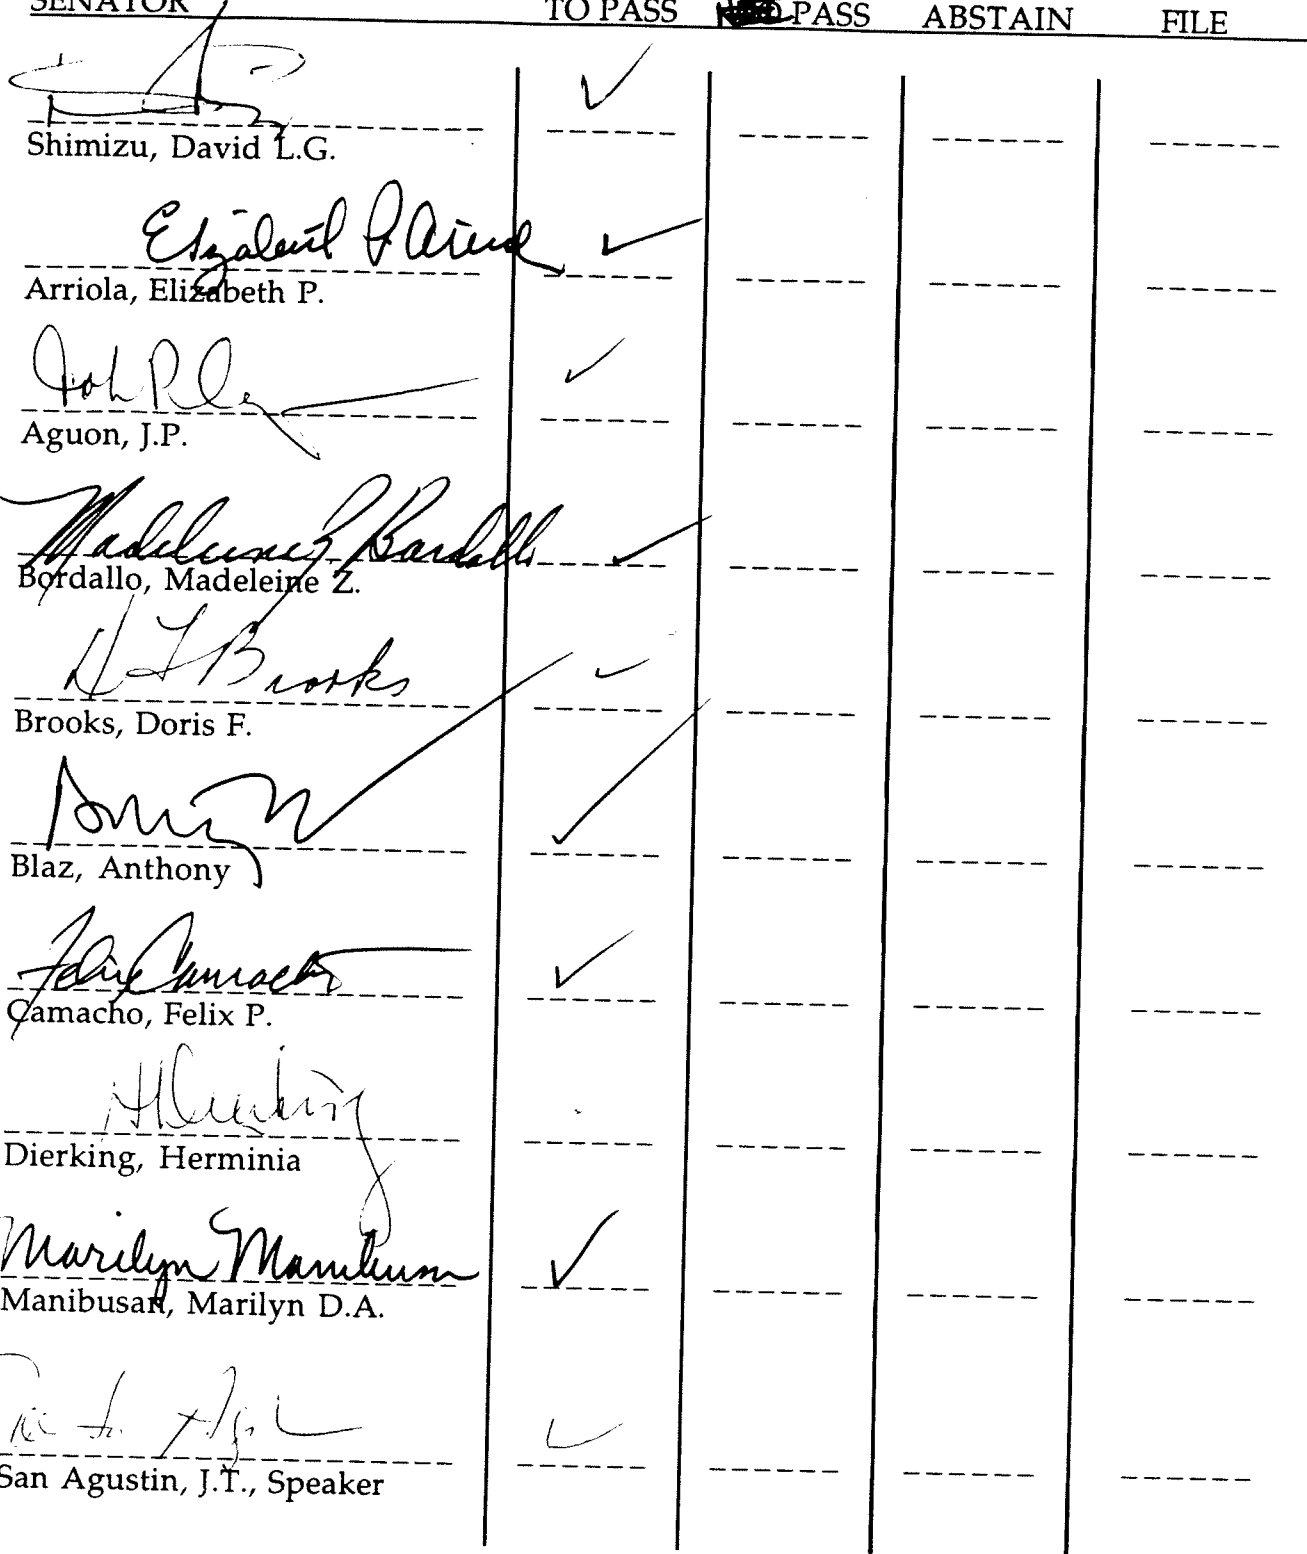 SENATOR TO PASS PASS ABSTAIN FILE
Shimizu, David L.G.
Elizabeth P. Arriola
Arriola, Elizabeth P.
Aguon, J.P.
Madeleine Z Bordallo
Bordallo, Madeleine Z.
D F Brooks
Brooks, Doris F.
Blaz, Anthony
Felix Camacho
Camacho, Felix P.
H Dierking
Dierking, Herminia
Marilyn Manibusan
Manibusan, Marilyn D.A.
San Agustin, J.T., Speaker